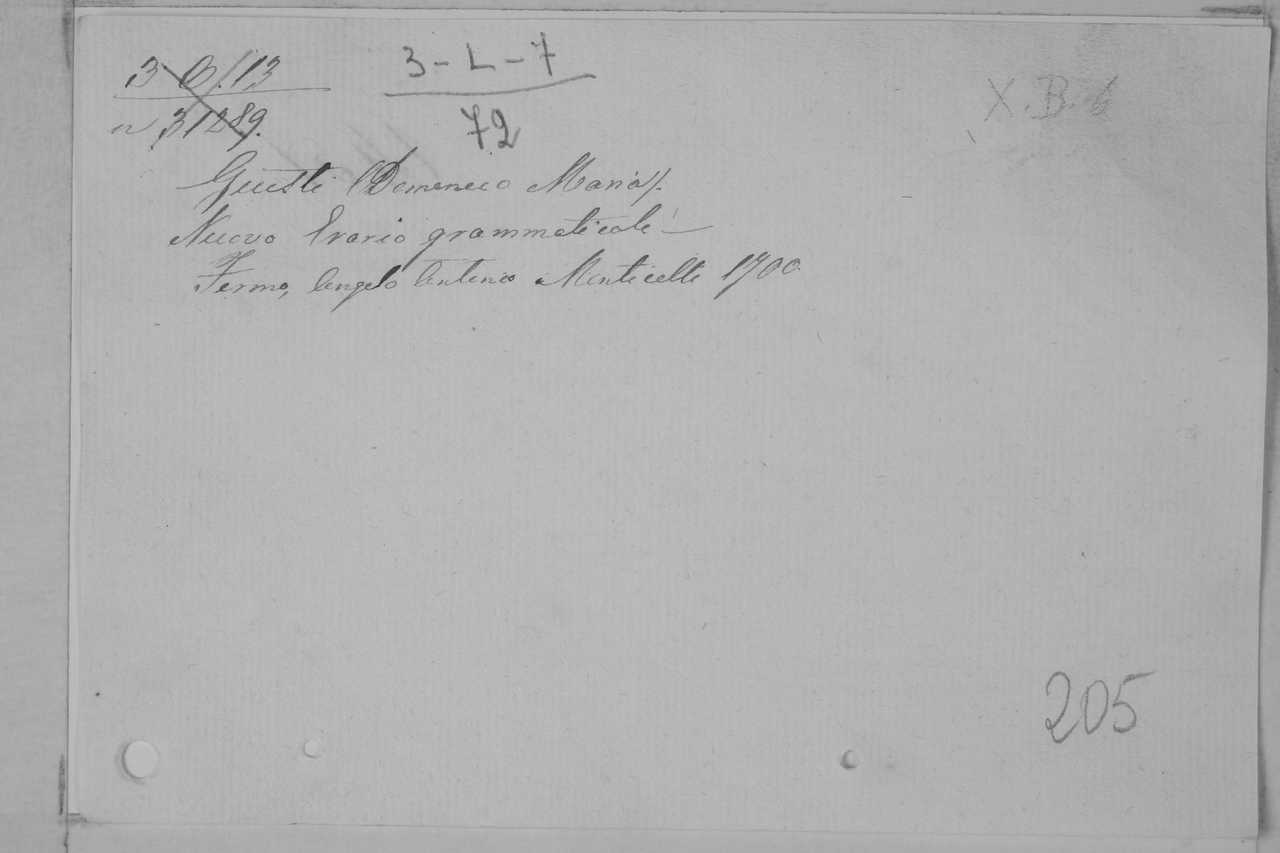 3 B/13
n 31289.
3-L-7
72
X.B.6
Giusti (Domenico Maria).
Nuovo Erario grammaticale -
Fermo, Angelo Antonio Monticelli 1700
205